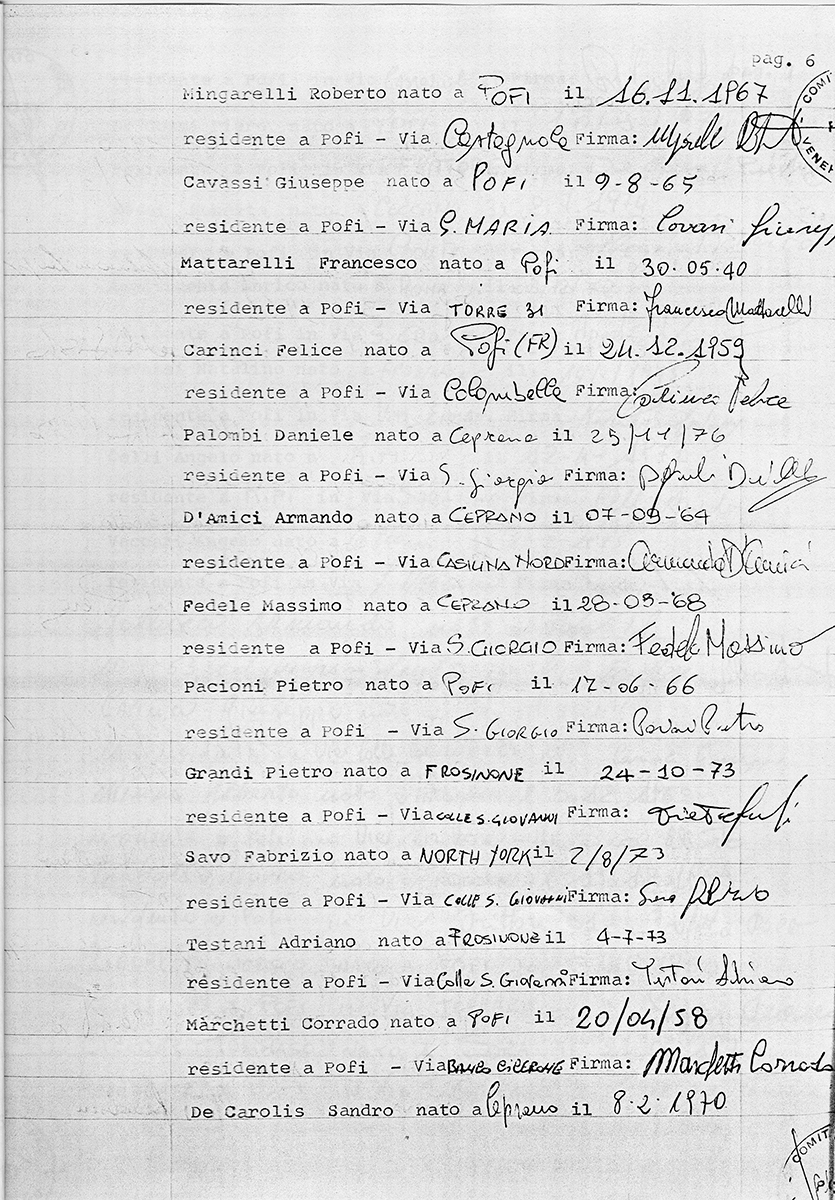 pag. 6
COMI
VENE
Mingarelli Roberto nato a POFI il 16.11.1967
residente a Pofi - Via Castagnola Firma:
Cavassi Giuseppe nato a POFI il 9-8-65
residente a Pofi - Via S. MARIA Firma:
Mattarelli Francesco nato a Pofi il 30.05.40
residente a Pofi - Via TORRE 31 Firma: Francesco Mattarelli
Carinci Felice nato a Pofi (FR) il 24.12.1959
residente a Pofi - Via Colombelle Firma: Felice
Palombi Daniele nato a Ceprano il 25/11/76
residente a Pofi - Via S. Giorgio Firma:
D'Amici Armando nato a CEPRANO il 07-09-'64
residente a Pofi - Via CASILINA NORD Firma: Armando D'Amici
Fedele Massimo nato a CEPRANO il 28-03-'68
residente a Pofi - Via S. GIORGIO Firma: Fedele Massimo
Pacioni Pietro nato a POFI il 17-06-66
residente a Pofi - Via S. GIORGIO Firma: Pietro
Grandi Pietro nato a FROSINONE il 24-10-73
residente a Pofi - Via COLLE S. GIOVANNI Firma:
Savo Fabrizio nato a NORTH YORK il 2/8/73
residente a Pofi - Via COLLE S. GIOVANNI Firma:
Testani Adriano nato a FROSINONE il 4-7-73
residente a Pofi - Via Colle S. Giovanni Firma: Testani Adriano
Marchetti Corrado nato a POFI il 20/04/58
residente a Pofi - Via Firma: Marchetti Corrado
De Carolis Sandro nato a Ceprano il 8.2.1970
OMIT